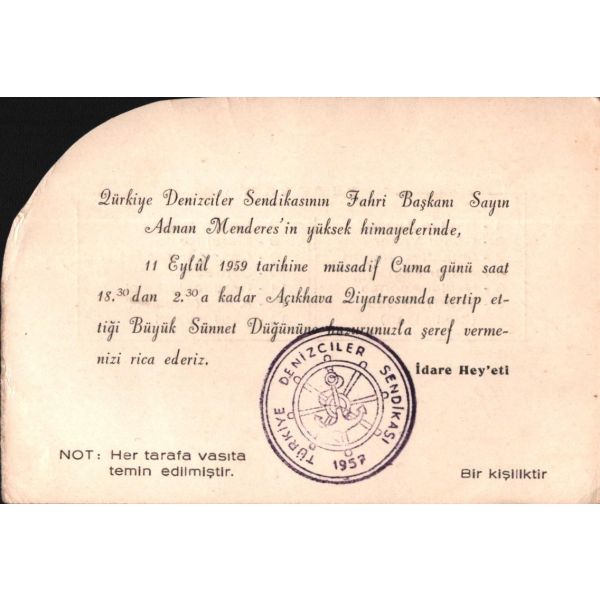 Türkiye Denizciler Sendikasının Fahri Başkanı Sayın
Adnan Menderes'in yüksek himayelerinde,
11 Eylûl 1959 tarihine müsadif Cuma günü saat
18.30 dan 2.30 a kadar Açıkhava Tiyatrosunda tertip et-
tiği Büyük Sünnet Düğününe huzurunuzla şeref verme-
nizi rica ederiz.
İdare Hey'eti
TÜRKİYE DENİZCİLER SENDİKASI
1957
NOT: Her tarafa vasıta
temin edilmiştir.
Bir kişiliktir